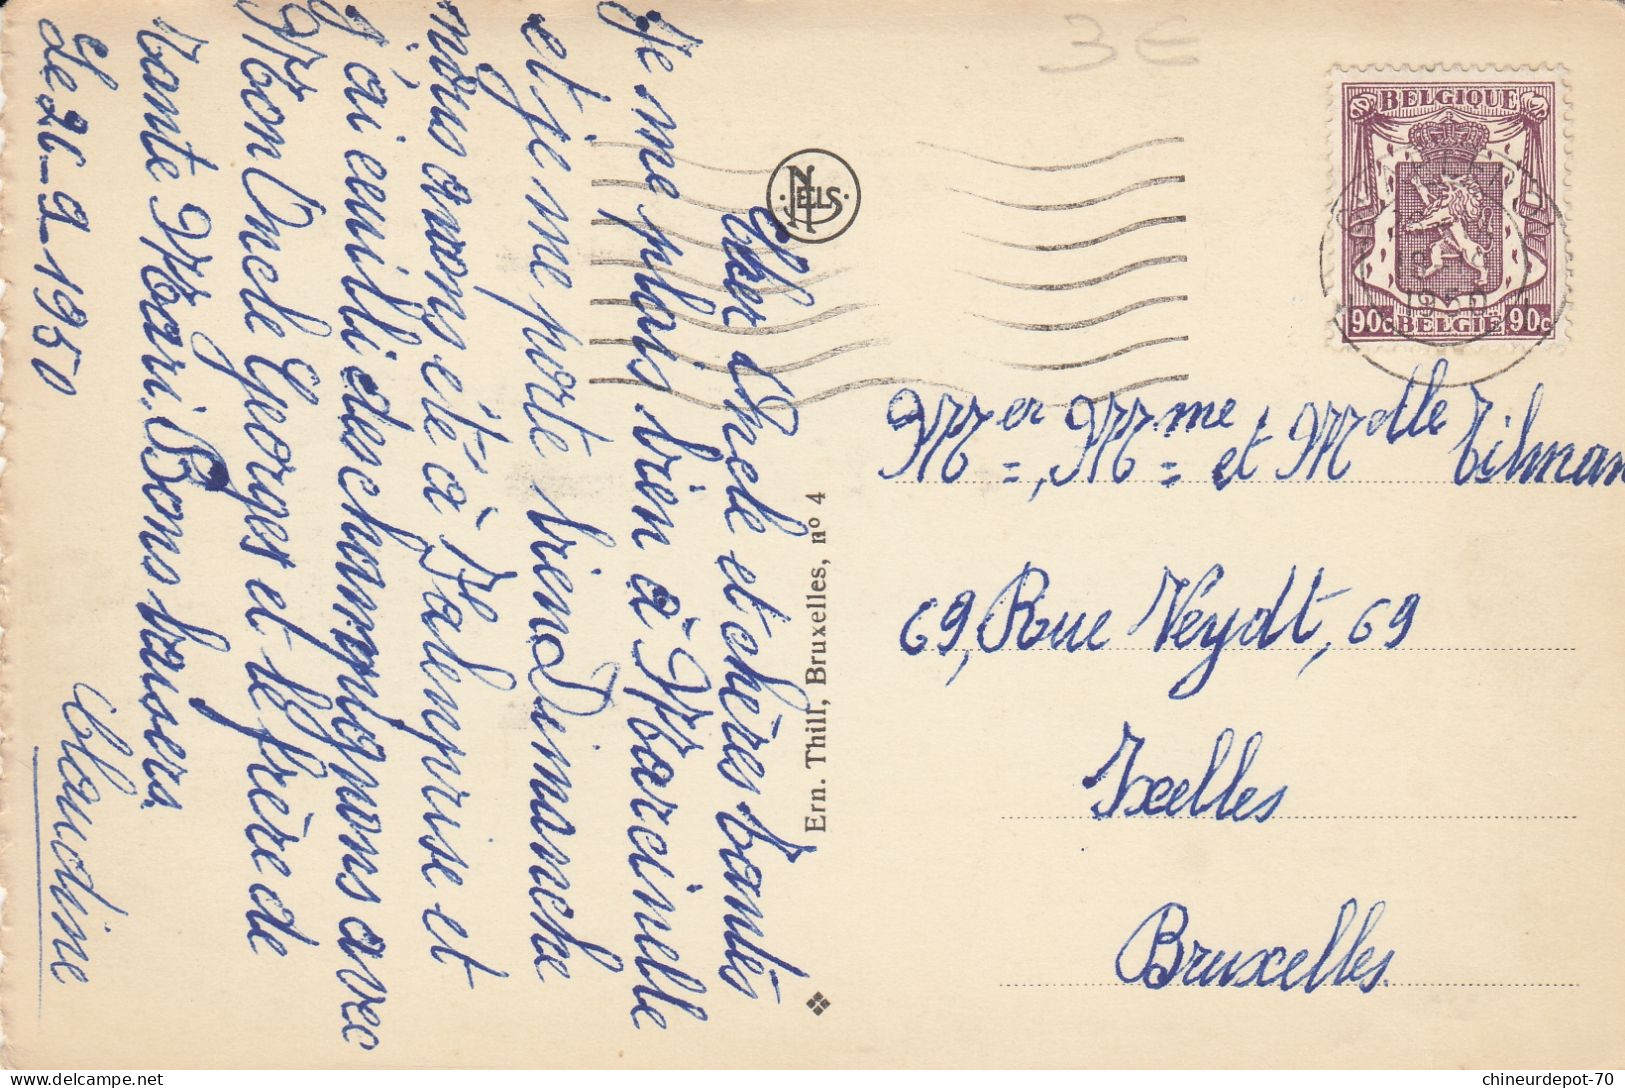 3 €
BELGIQUE
90c BELGIE 90c
1950
NELS
Ern. Thill, Bruxelles, nº 4
Cher Oncle et chères tantes
Je me plais bien à Marcinelle
et je me porte bien. Dimanche
nous avons été à Falemprise et
j'ai cueilli des champignons avec
Mon Oncle Georges et le frère de
tante Mari. Bons baisers
Le 26-9-1950
Claudine
Mr er, Mme et Melle Tilman
69, Rue Veydt, 69
Ixelles
Bruxelles.
chineurdepot-70